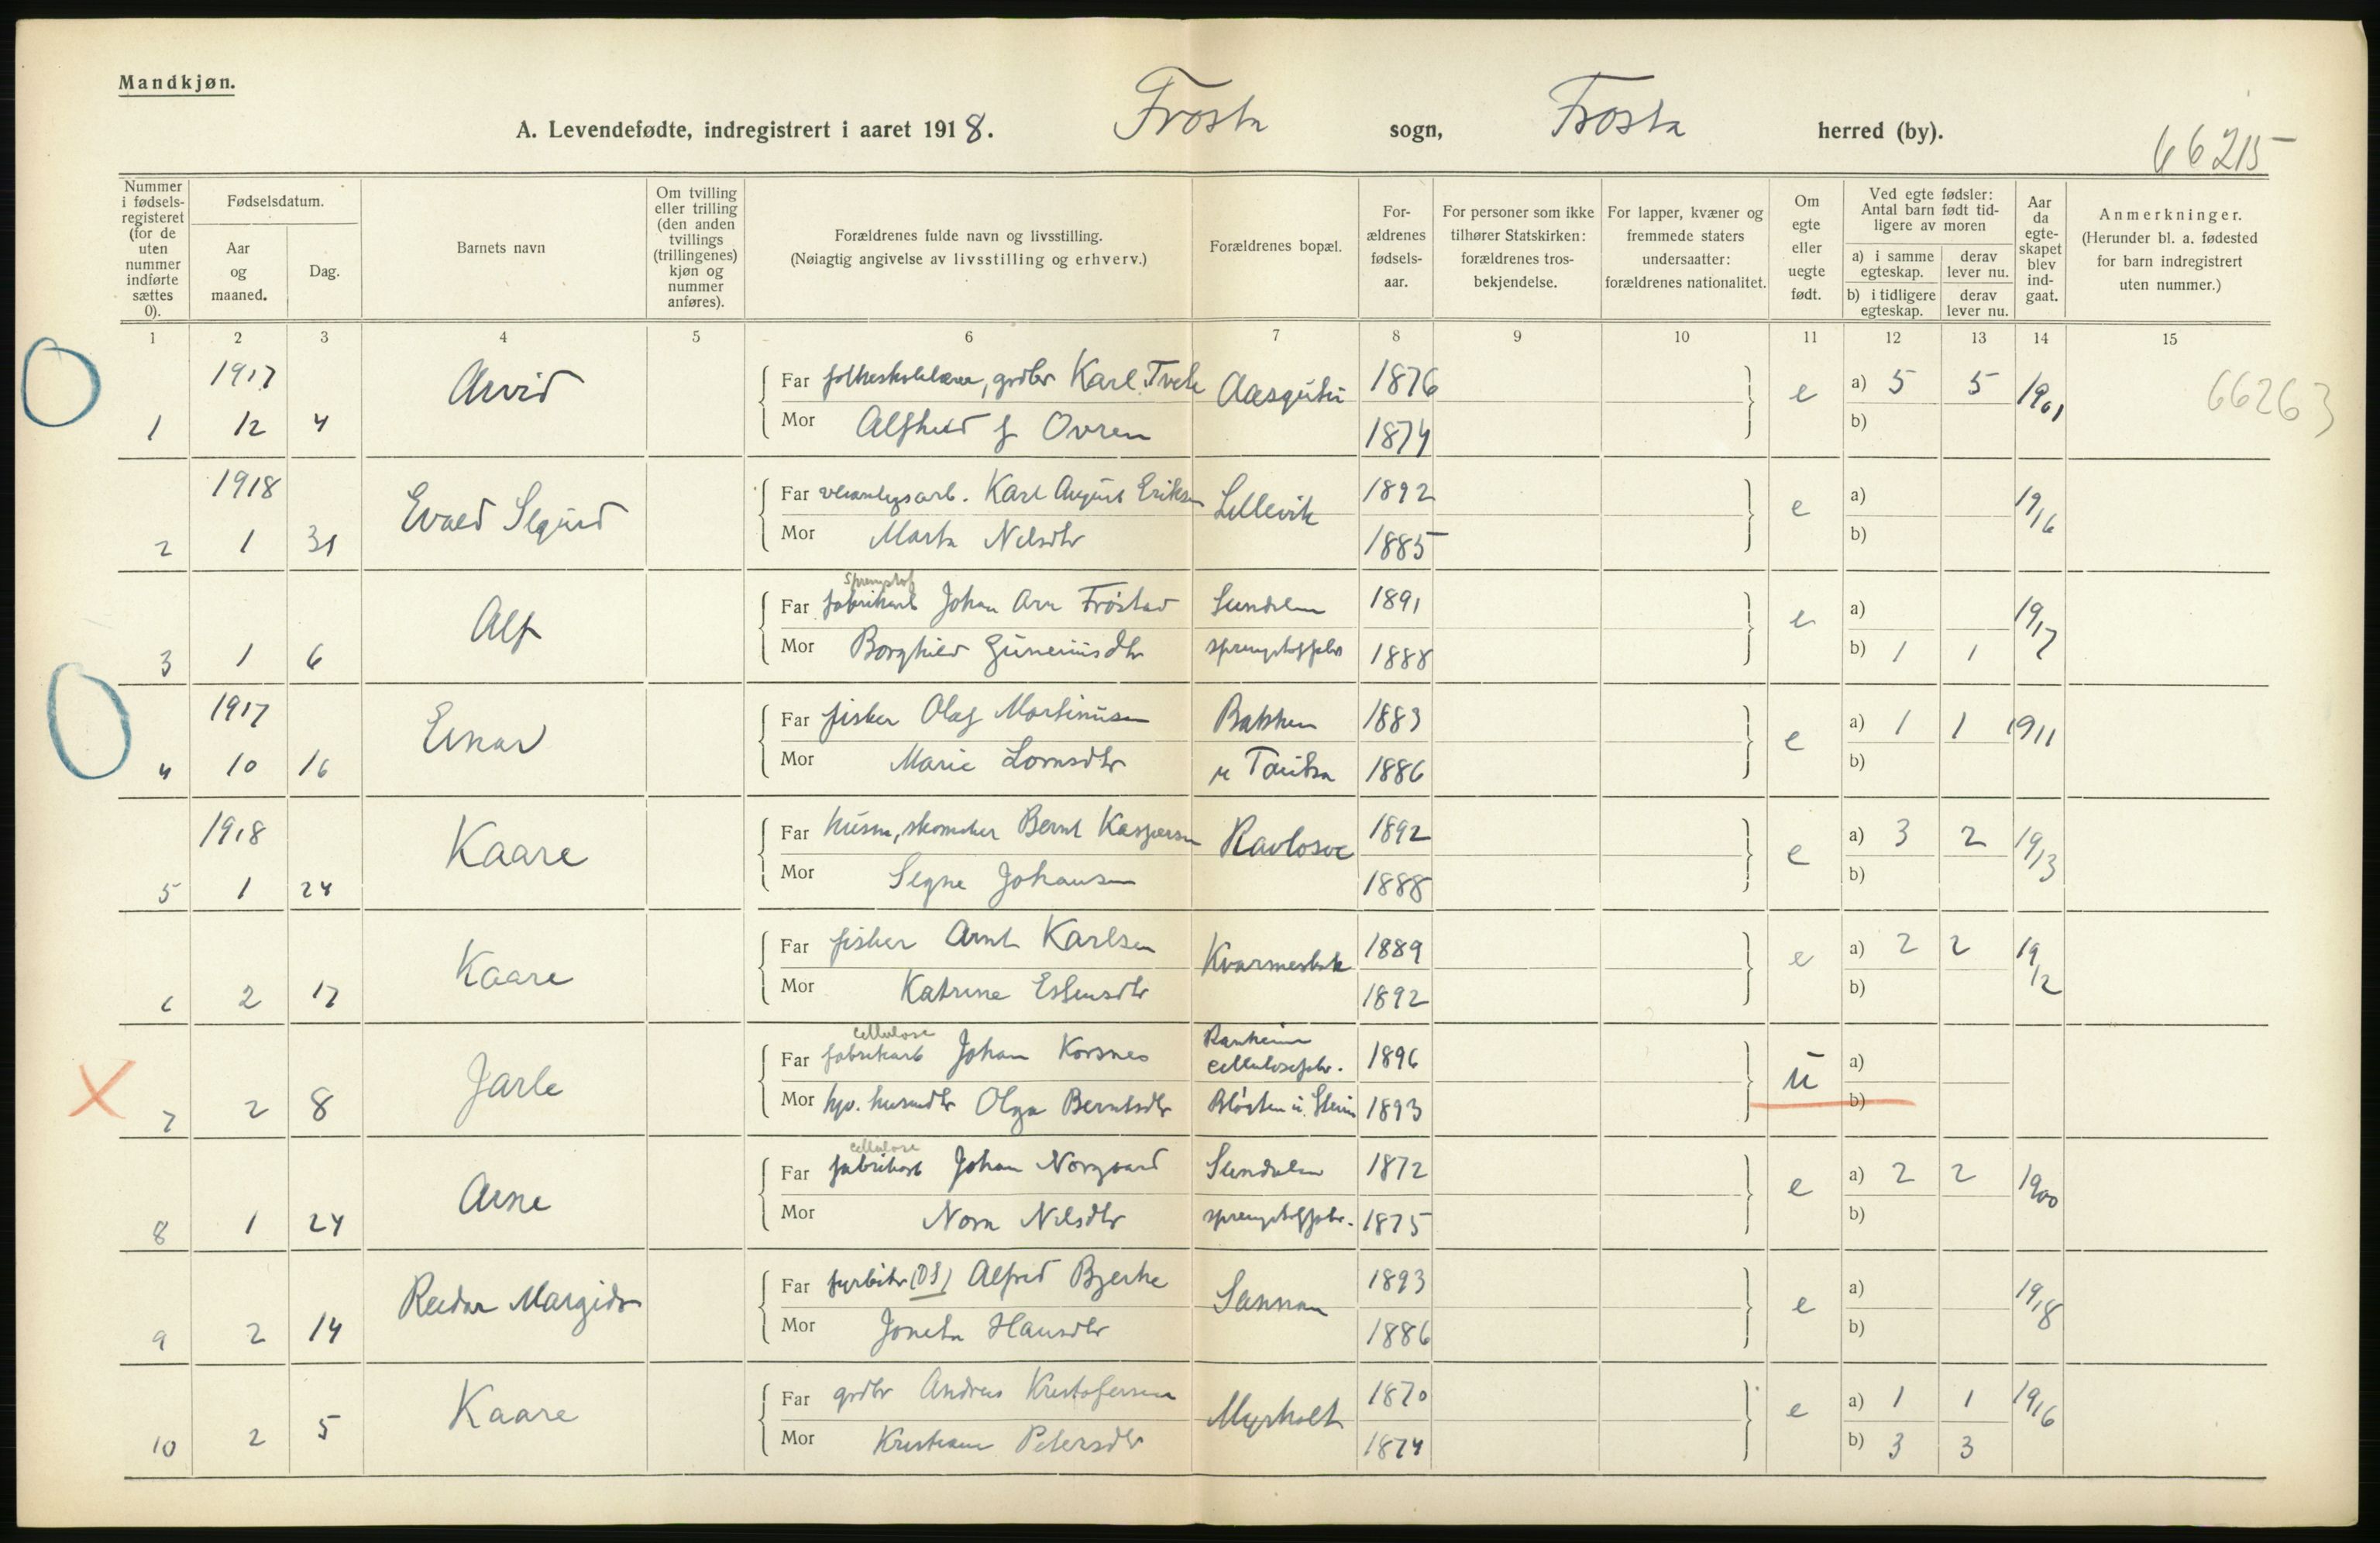 Mandkjøn.
A. Levendefødte, indregistrert i aaret 1918. Frosta sogn, Frosta herred (by).
66215
Nummer i fødsels-registeret (for de uten nummer indførte sættes 0).
Fødselsdatum.
Aar og maaned.
Dag.
Barnets navn
Om tvilling eller trilling (den anden tvillings (trillingenes) kjøn og nummer anføres).
Forældrenes fulde navn og livsstilling.
(Nøiagtig angivelse av livsstilling og erhverv.)
Forældrenes bopæl.
For-ældrenes fødsels-aar.
For personer som ikke tilhører Statskirken: forældrenes tros-bekjendelse.
For lapper, kvæner og fremmede staters undersaatter: forældrenes nationalitet.
Om egte eller uegte født.
Ved egte fødsler: Antal barn født tid-ligere av moren
a) i samme egteskap.
derav lever nu.
b) i tidligere egteskap.
derav lever nu.
Aar da egte-skapet blev ind-gaat.
Anmerkninger.
(Herunder bl. a. fødested for barn indregistrert uten nummer.)
1 2 3 4 5 6 7 8 9 10 11 12 13 14 15
1917 Arvid Far grdbr Karl 1876 e a) 5 5 1901 66263
1 12 4 Mor Alfhild f Ovren 1874 b)
1918 Evald Sigurd Far veianlegsarb. Karl August Eriksen Lillevik 1892 e a) 1916
2 1 31 Mor Marta Nilsdtr 1885 b)
sprengstof
Alf Far fabrikarb Johan Arn Frøstad Sundalen 1891 e a) 1917
3 1 6 Mor Borghild Guneriusdtr sprengstoffabr 1888 b) 1 1
1917 Einar Far fisker Olaf Martinusen Bakken 1883 e a) 1 1 1911
4 10 16 Mor Marie Lornsdtr u Tautra 1886 b)
1918 Kaare Far husm, skomaker Bernt Kaspersen Ravlosve 1892 e a) 3 2 1913
5 1 24 Mor Signe Johansen 1888 b)
Kaare Far fisker Arnt Karlsen 1889 e a) 2 2 1912
6 2 17 Mor Katrine Estensdtr 1892 b)
cellulose Ranheim
Jarle Far fabrikarb Johan Korsnes cellulosefabr. 1896 u a)
7 2 8 Mor hjv. husmdtr Olga Berntsdtr 1893 b)
cellulose
Arne Far fabrikarb Johan Norgaard Sundalen 1872 e a) 2 2 1900
8 1 24 Mor Nora Nilsdtr sprengstoffabr. 1875 b)
Reidar Margido Far fyrbøter (DS) Alfred Bjerke Sannan 1893 e a) 1918
9 2 14 Mor Joneta Hansdtr 1886 b)
Kaare Far grdbr Andreas Kristofersen Myrholt 1870 e a) 1 1 1916
10 2 5 Mor Kristiane Petersdtr 1874 b) 3 3